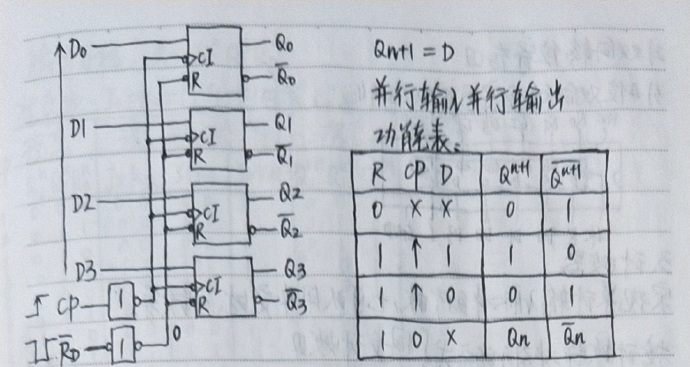 D0
CI
R
Q0
Q̄0
D1
CI
R
Q1
Q̄1
D2
CI
R
Q2
Q̄2
D3
CI
R
Q3
Q̄3
CP 1
R̄D 1 0
Qn+1 = D
并行输入并行输出
功能表:
R CP D Qⁿ⁺¹ Q̄ⁿ⁺¹
0 X X 0 1
1 ↑ 1 1 0
1 ↑ 0 0 1
1 0 X Qn Q̄n